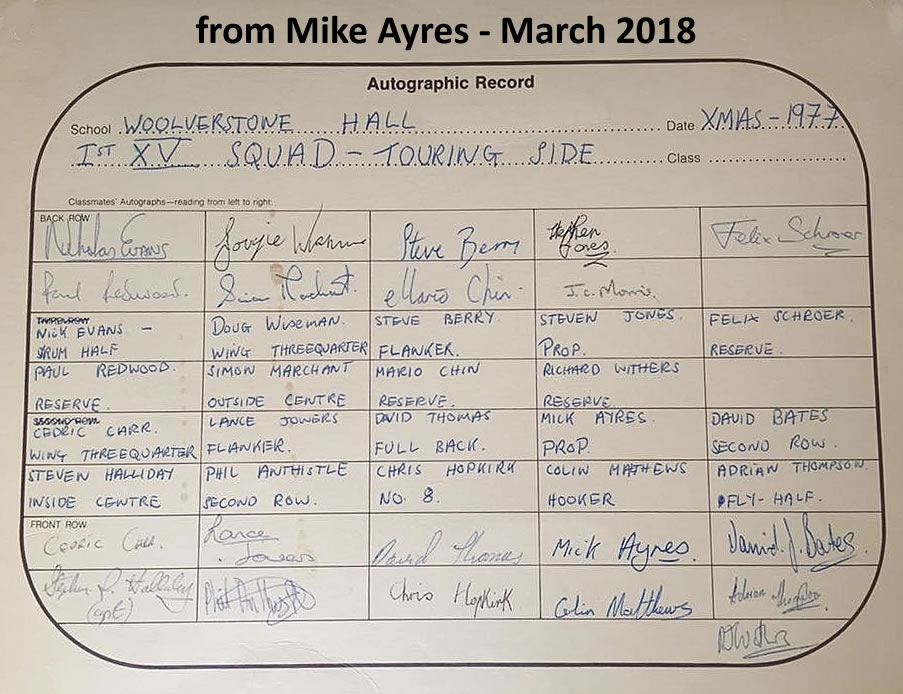 from Mike Ayres - March 2018
Autographic Record
School WOOLVERSTONE HALL Date XMAS-1977
IST XV SQUAD - TOURING SIDE Class
Classmates' Autographs—reading from left to right:
BACK ROW
Nicholas Evans Dougie Steve Berry Stephen Jones Felix Schroer
Paul Redwood. Simon Marchant. Mario Chin. J.C. Morris.
NICK EVANS - DOUG WISEMAN. STEVE BERRY STEVEN JONES. FELIX SCHROER.
SRUM HALF WING THREEQUARTER FLANKER. PROP. RESERVE.
PAUL REDWOOD. SIMON MARCHANT MARIO CHIN RICHARD WITHERS
RESERVE. OUTSIDE CENTRE RESERVE. RESERVE
SECOND ROW
CEDRIC CARR. LANCE JOWERS DAVID THOMAS MICK AYRES. DAVID BATES
WING THREEQUARTER FLANKER. FULL BACK. PROP. SECOND ROW.
STEVEN HALLIDAY PHIL ANTHISTLE CHRIS HOPKIRK COLIN MATHEWS ADRIAN THOMPSON.
INSIDE CENTRE SECOND ROW. NO. 8. HOOKER FLY-HALF.
FRONT ROW
Cedric Carr. Lance Jowers David Thomas Mick Ayres. David. J. Bates
Stephen Halliday (cpt) Phil Anthistle Chris Hopkirk Colin Matthews Adrian Thompson